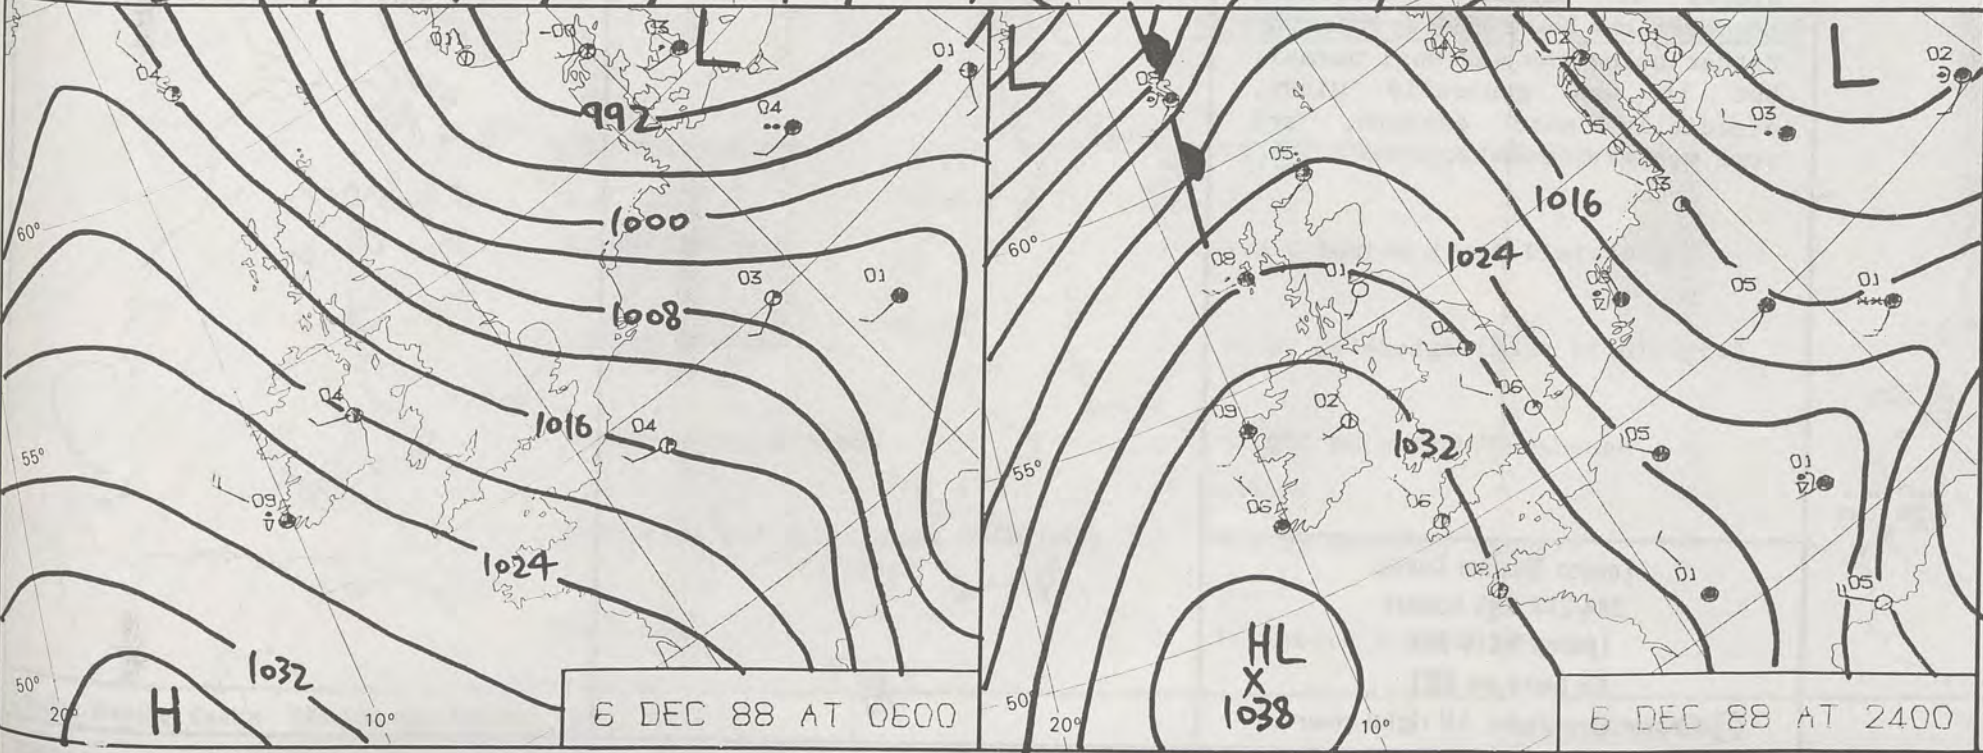 L
04
01
-00
03
01
992
04
60°
1000
03
01
1008
04
1016
04
55°
09
1024
50°
20°
H
1032
10°
6 DEC 88 AT 0600
L
04
02
01
L
02
03
05
05
03
1016
60°
1024
08
01
08
05
01
04
06
09
02
1032
05
01
55°
06
06
02
01
05
HL
X
1038
50°
20°
10°
6 DEC 88 AT 2400